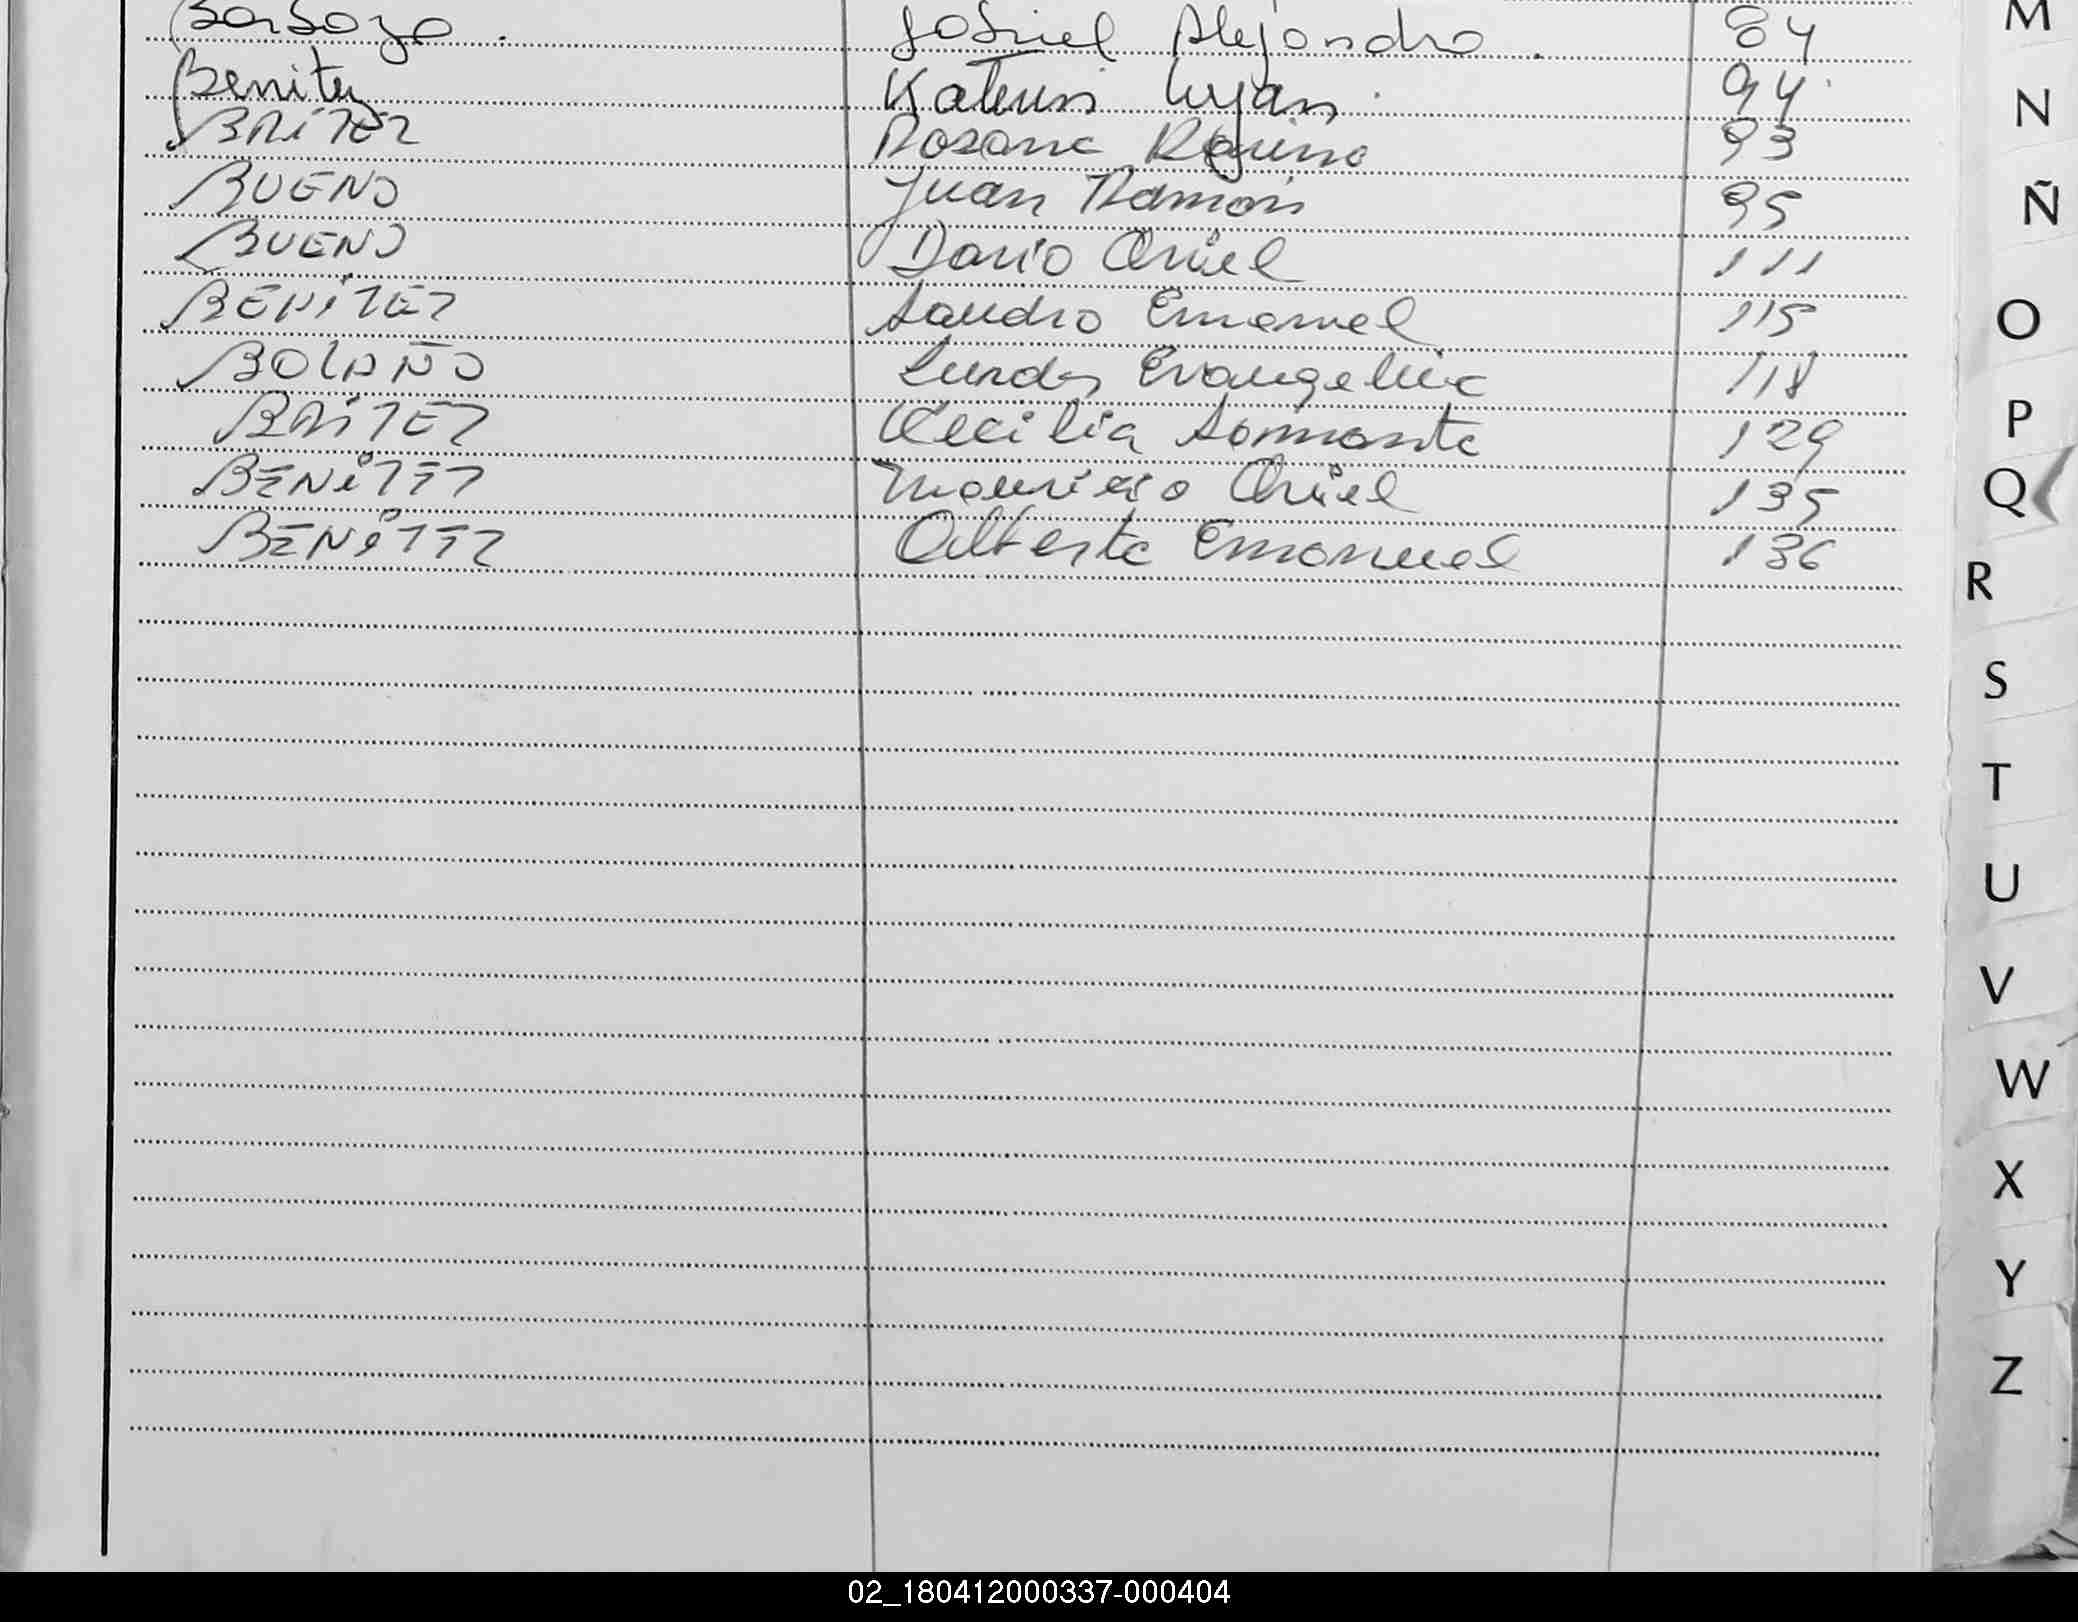 Barbozo. Gabriel Alejandro. 84
Benitez Katerin Lujan. 94
BRITEZ Rosana Regina 93
BUENO Juan Ramon 95
BUENO Dario Ariel 111
BENITEZ Sandro Emanuel 115
BOLAÑO Lurdes Evangelina 118
BRITEZ Cecilia 129
BENITEZ Mauricio Ariel 135
BENITEZ Alberto Emanuel 136
M
N
Ñ
O
P
Q
R
S
T
U
V
W
X
Y
Z
02_180412000337-000404